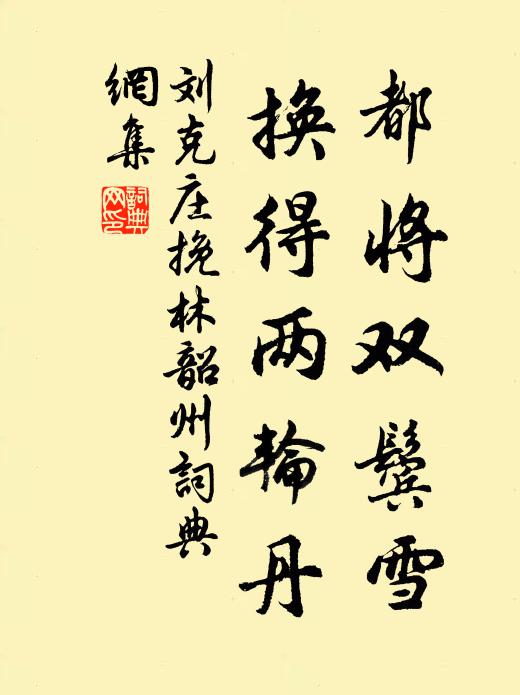 都将双鬓雪
换得两輪丹
刘克庄挽林韶州詞典
網集
詞典
网印